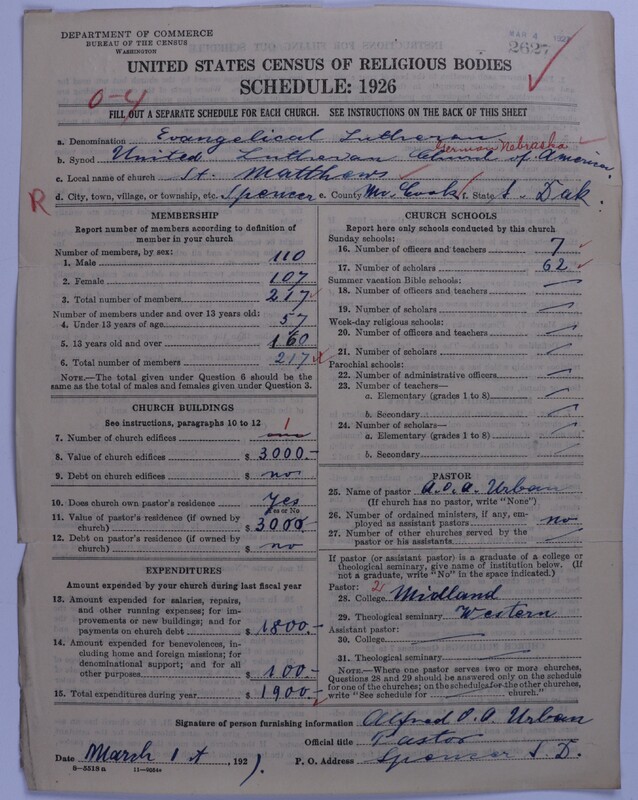 DEPARTMENT OF COMMERCE
BUREAU OF THE CENSUS
WASHINGTON
MAR 4 1927
2627
UNITED STATES CENSUS OF RELIGIOUS BODIES
SCHEDULE: 1926
0-4
FILL OUT A SEPARATE SCHEDULE FOR EACH CHURCH. SEE INSTRUCTIONS ON THE BACK OF THIS SHEET
a. Denomination Evangelical Lutheran
German Nebraska
b. Synod United Lutheran Church of America
c. Local name of church St. Matthews
R
d. City, town, village, or township, etc. Spencer e. County Mc Cook f. State S. Dak.
MEMBERSHIP
Report number of members according to definition of member in your church
Number of members, by sex:
1. Male 110
2. Female 107
3. Total number of members 217
Number of members under and over 13 years old:
4. Under 13 years of age 57
5. 13 years old and over 160
6. Total number of members 217
NOTE.—The total given under Question 6 should be the same as the total of males and females given under Question 3.
CHURCH BUILDINGS
See instructions, paragraphs 10 to 12
7. Number of church edifices one 1
8. Value of church edifices $ 3000.-
9. Debt on church edifices $ no
10. Does church own pastor's residence Yes
Yes or No
11. Value of pastor's residence (if owned by church) $ 3000.-
12. Debt on pastor's residence (if owned by church) $ no
EXPENDITURES
Amount expended by your church during last fiscal year
13. Amount expended for salaries, repairs, and other running expenses; for improvements or new buildings; and for payments on church debt $ 1800.-
14. Amount expended for benevolences, including home and foreign missions; for denominational support; and for all other purposes $ 100.-
15. Total expenditures during year $ 1900.-
CHURCH SCHOOLS
Report here only schools conducted by this church
Sunday schools:
16. Number of officers and teachers 7
17. Number of scholars 62
Summer vacation Bible schools:
18. Number of officers and teachers
19. Number of scholars
Week-day religious schools:
20. Number of officers and teachers
21. Number of scholars
Parochial schools:
22. Number of administrative officers
23. Number of teachers—
a. Elementary (grades 1 to 8)
b. Secondary
24. Number of scholars—
a. Elementary (grades 1 to 8)
b. Secondary
PASTOR
25. Name of pastor A.O.A. Urban
(If church has no pastor, write "None")
26. Number of ordained ministers, if any, employed as assistant pastors no
27. Number of other churches served by the pastor or his assistants
If pastor (or assistant pastor) is a graduate of a college or theological seminary, give name of institution below. (If not a graduate, write "No" in the space indicated.)
Pastor: 2
28. College Midland
29. Theological seminary Western
Assistant pastor:
30. College
31. Theological seminary
NOTE.—Where one pastor serves two or more churches, Questions 28 and 29 should be answered only on the schedule for one of the churches; on the schedules for the other churches, write "See schedule for church."
Signature of person furnishing information Alfred O.A. Urban
Official title Pastor
Date March 1st, 1927. P. O. Address Spencer S. D.
8—5518 a 11—9664a